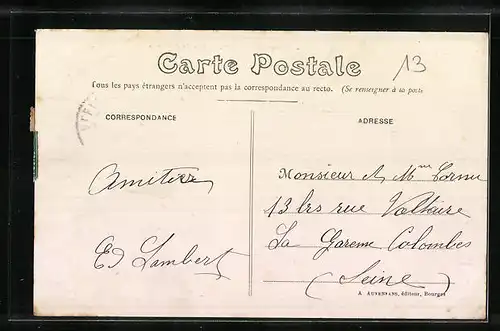 Carte Postale
13
Tous les pays étrangers n'acceptent pas la correspondance au recto. (Se renseigner à la poste
CORRESPONDANCE
ADRESSE
Monsieur & Mme Cornu
13 bis rue Voltaire
La Garenne Colombes
(Seine)
Amitiés
Ed Lambert
A. AUXENFANS, éditeur, Bourges